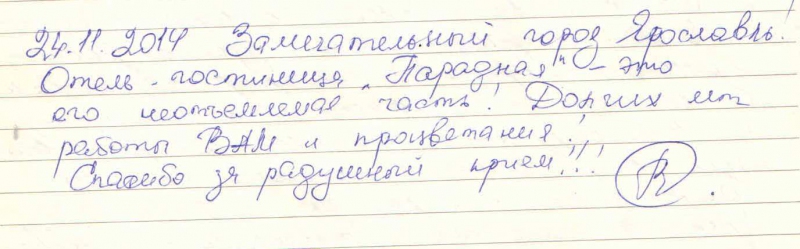 24.11.2014 Замечательный город Ярославль!
Отель-гостиница "Парадная" – это
его неотъемлемая часть! Долгих лет
работы ВАМ и процветания!
Спасибо за радушный прием!!!